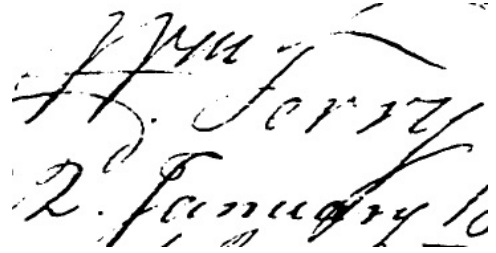 Wm Terry
2. January 18